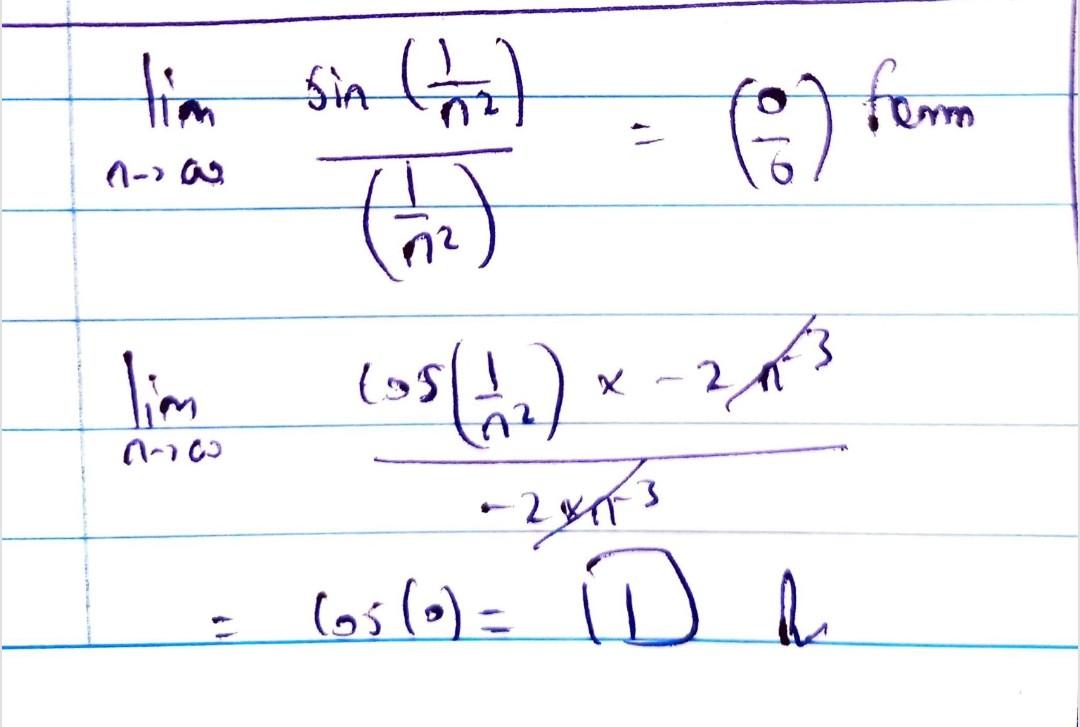 lim n→∞ sin (1/n²) / (1/n²) = (0/0) form
lim n→∞ cos(1/n²) × -2n⁻³ / -2×n⁻³
= cos(0) = 1